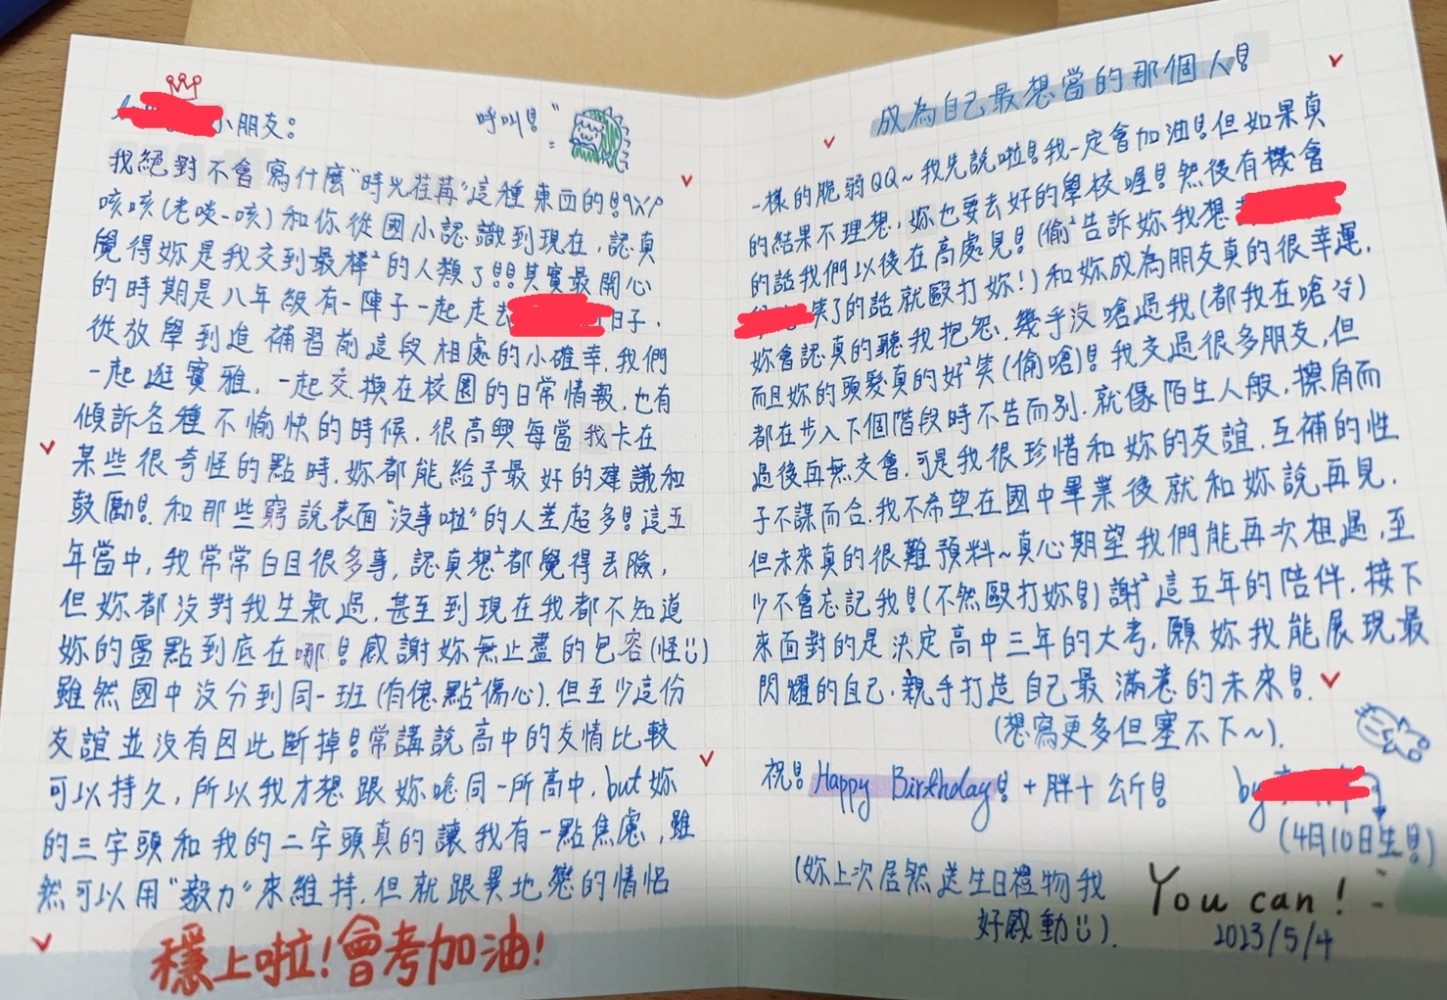 小朋友：
呼叫！
我絕對不會寫什麼“時光荏苒”這種東西的！
咳咳(老啖一咳)和你從國小認識到現在，認真
覺得妳是我交到最棒²的人類了!!!其實最開心
的時期是八年級有一陣子一起走去 日子，
從放學到進補習前這段相處的小確幸，我們
一起逛寶雅，一起交換在校園的日常情報，也有
傾訴各種不愉快的時候，很高興每當我卡在
某些很奇怪的點時，妳都能給予最好的建議和
鼓勵！和那些窮說表面“沒事啦”的人差超多!!這五
年當中，我常常白目很多事，認真想²都覺得丟臉，
但妳都沒對我生氣過，甚至到現在我都不知道
妳的雷點到底在哪！感謝妳無止盡的包容(怪:)
雖然國中沒分到同一班(有億點²傷心)，但至少這份
友誼並沒有因此斷掉！常講說高中的友情比較
可以持久，所以我才想跟妳唸同一所高中，but妳
的三字頭和我的二字頭真的讓我有一點焦慮，雖
然可以用“毅力”來維持，但就跟異地戀的情侶
穩上啦！會考加油！
成為自己最想當的那個人！
一樣的脆弱QQ~我先說啦！我一定會加油！但如果真
的結果不理想，妳也要去好的學校喔！然後有機會
的話我們以後在高處見！(偷²告訴妳我想
笑了的話就毆打妳！)和妳成為朋友真的很幸運，
妳會認真的聽我抱怨，幾乎沒嗆過我(都我在嗆)
而且妳的頭髮真的好²笑(偷嗆)！我交過很多朋友，但
都在步入下個階段時不告而別，就像陌生人般，擦肩而
過後再無交會，可是我很珍惜和妳的友誼，互補的性
子不謀而合，我不希望在國中畢業後就和妳說再見，
但未來真的很難預料~真心期望我們能再次相遇，至
少不會忘記我！(不然毆打妳!!)謝²這五年的陪伴，接下
來面對的是決定高中三年的大考，願妳我能展現最
閃耀的自己，親手打造自己最滿意的未來！
(想寫更多但塞不下~)
祝！Happy Birthday！+胖十公斤！
by
(4月10日生！)
(妳上次居然送生日禮物我
好感動:)
You can！
2023/5/4